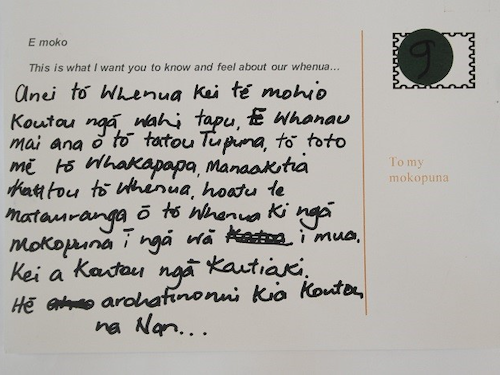 E moko
This is what I want you to know and feel about our whenua...
Anei tō Whenua Kei tē mohio
Koutou ngā Wahi tapu, E Whanau
mai ana ō tō tatou Tupuna, tō toto
mē tō Whakapapa, Manaakitia
Koutou tō Whenua, hoatu te
matauranga ō tō Whenua ki ngā
Mokopuna ī ngā wā i mua.
Kei a Koutou ngā Kaitiaki.
Hē arohatinonui Kia Koutou
na Nan...
g
To my
mokopuna